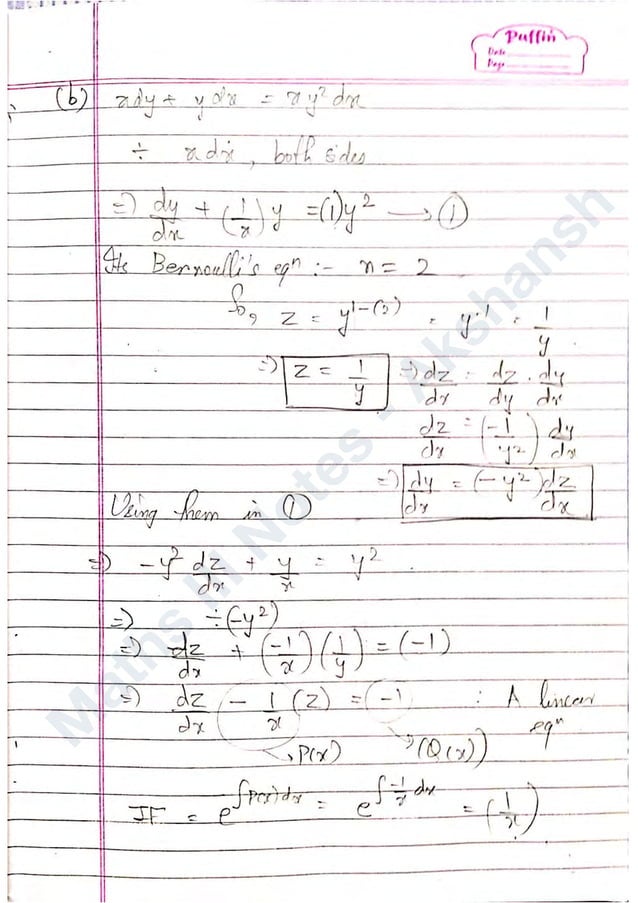 Puffin
Date
Page
(b) xdy + ydx = xy²dx
÷ xdx, both sides
=> dy/dx + (1/x)y = (1)y² → ①
Its Bernoulli's eqⁿ :- n = 2
So, z = y^(1-(2)) = y^-1 = 1/y
=> z = 1/y => dz/dx = dz/dy · dy/dx
dz/dx = (-1/y²) dy/dx
=> dy/dx = (-y²) dz/dx
Using them in ①
=> -y² dz/dx + y/x = y²
=> ÷(-y²)
=> dz/dx + (-1/x)(1/y) = (-1)
=> dz/dx - 1/x (z) = (-1) : A linear eqⁿ
→ P(x) → (Q(x))
IF = e^∫P(x)dx = e^∫-1/x dx = (1/x)
Maths III Notes - Akshansh